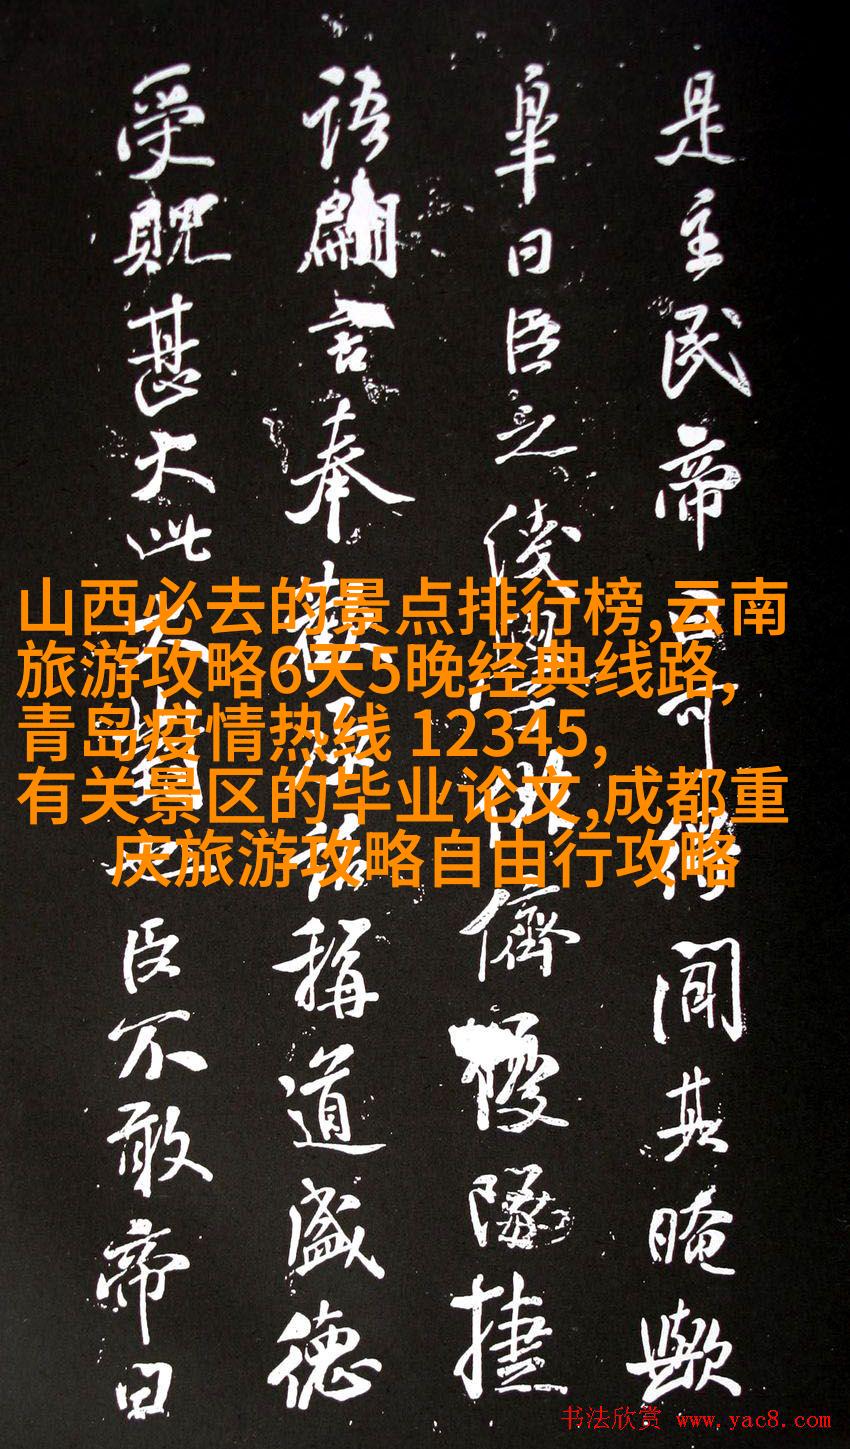 是主民帝曰間其晻歟
皐曰臣之儕優隊捷
語翩言奉稱道盛德
受貺甚大此臣不敢帝曰
山西必去的景点排行榜,云南
旅游攻略6天5晚经典线路,
青岛疫情热线 12345,
有关景区的毕业论文,成都重
庆旅游攻略自由行攻略
书法欣赏 www.yac8.com